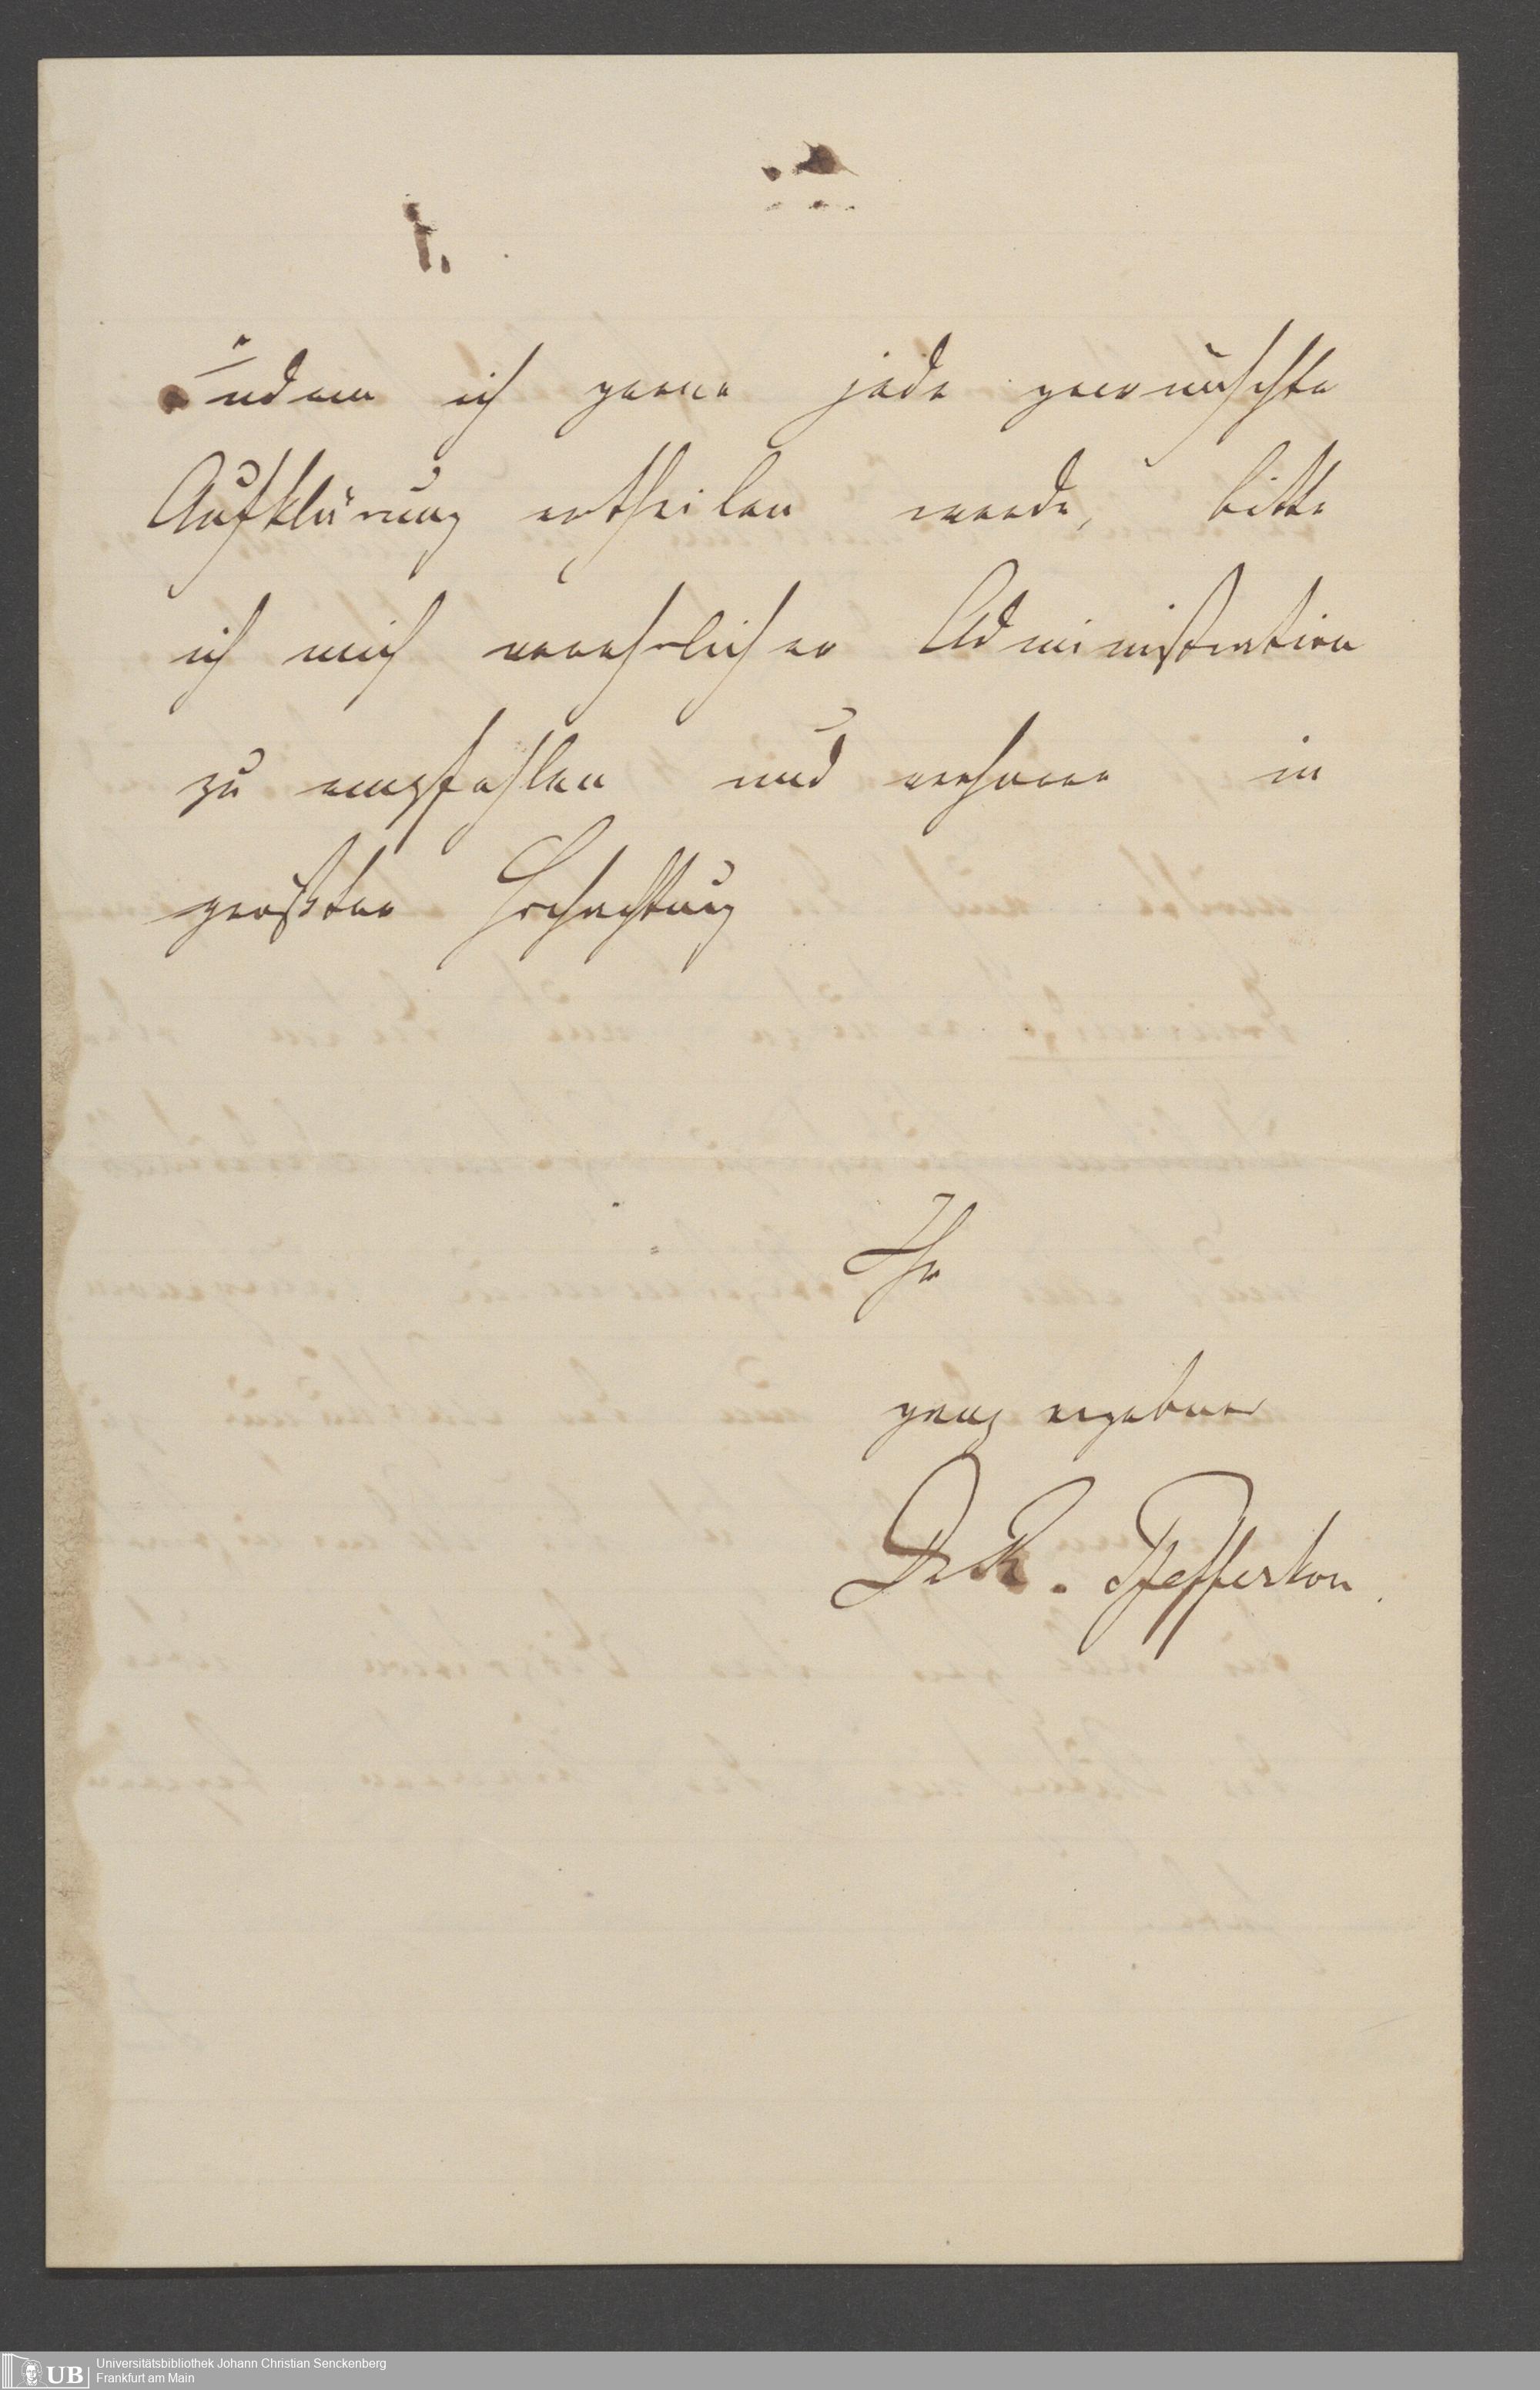 Indem ich gerne jede gewünschte
Aufklärung ertheilen werde, bitte
ich mich verehrlicher Administration
zu empfehlen und verharre in
größter Hochachtung
Ihr
ganz ergebner
Dr R. Pfefferkorn.
Universitätsbibliothek Johann Christian Senckenberg
Frankfurt am Main
UB